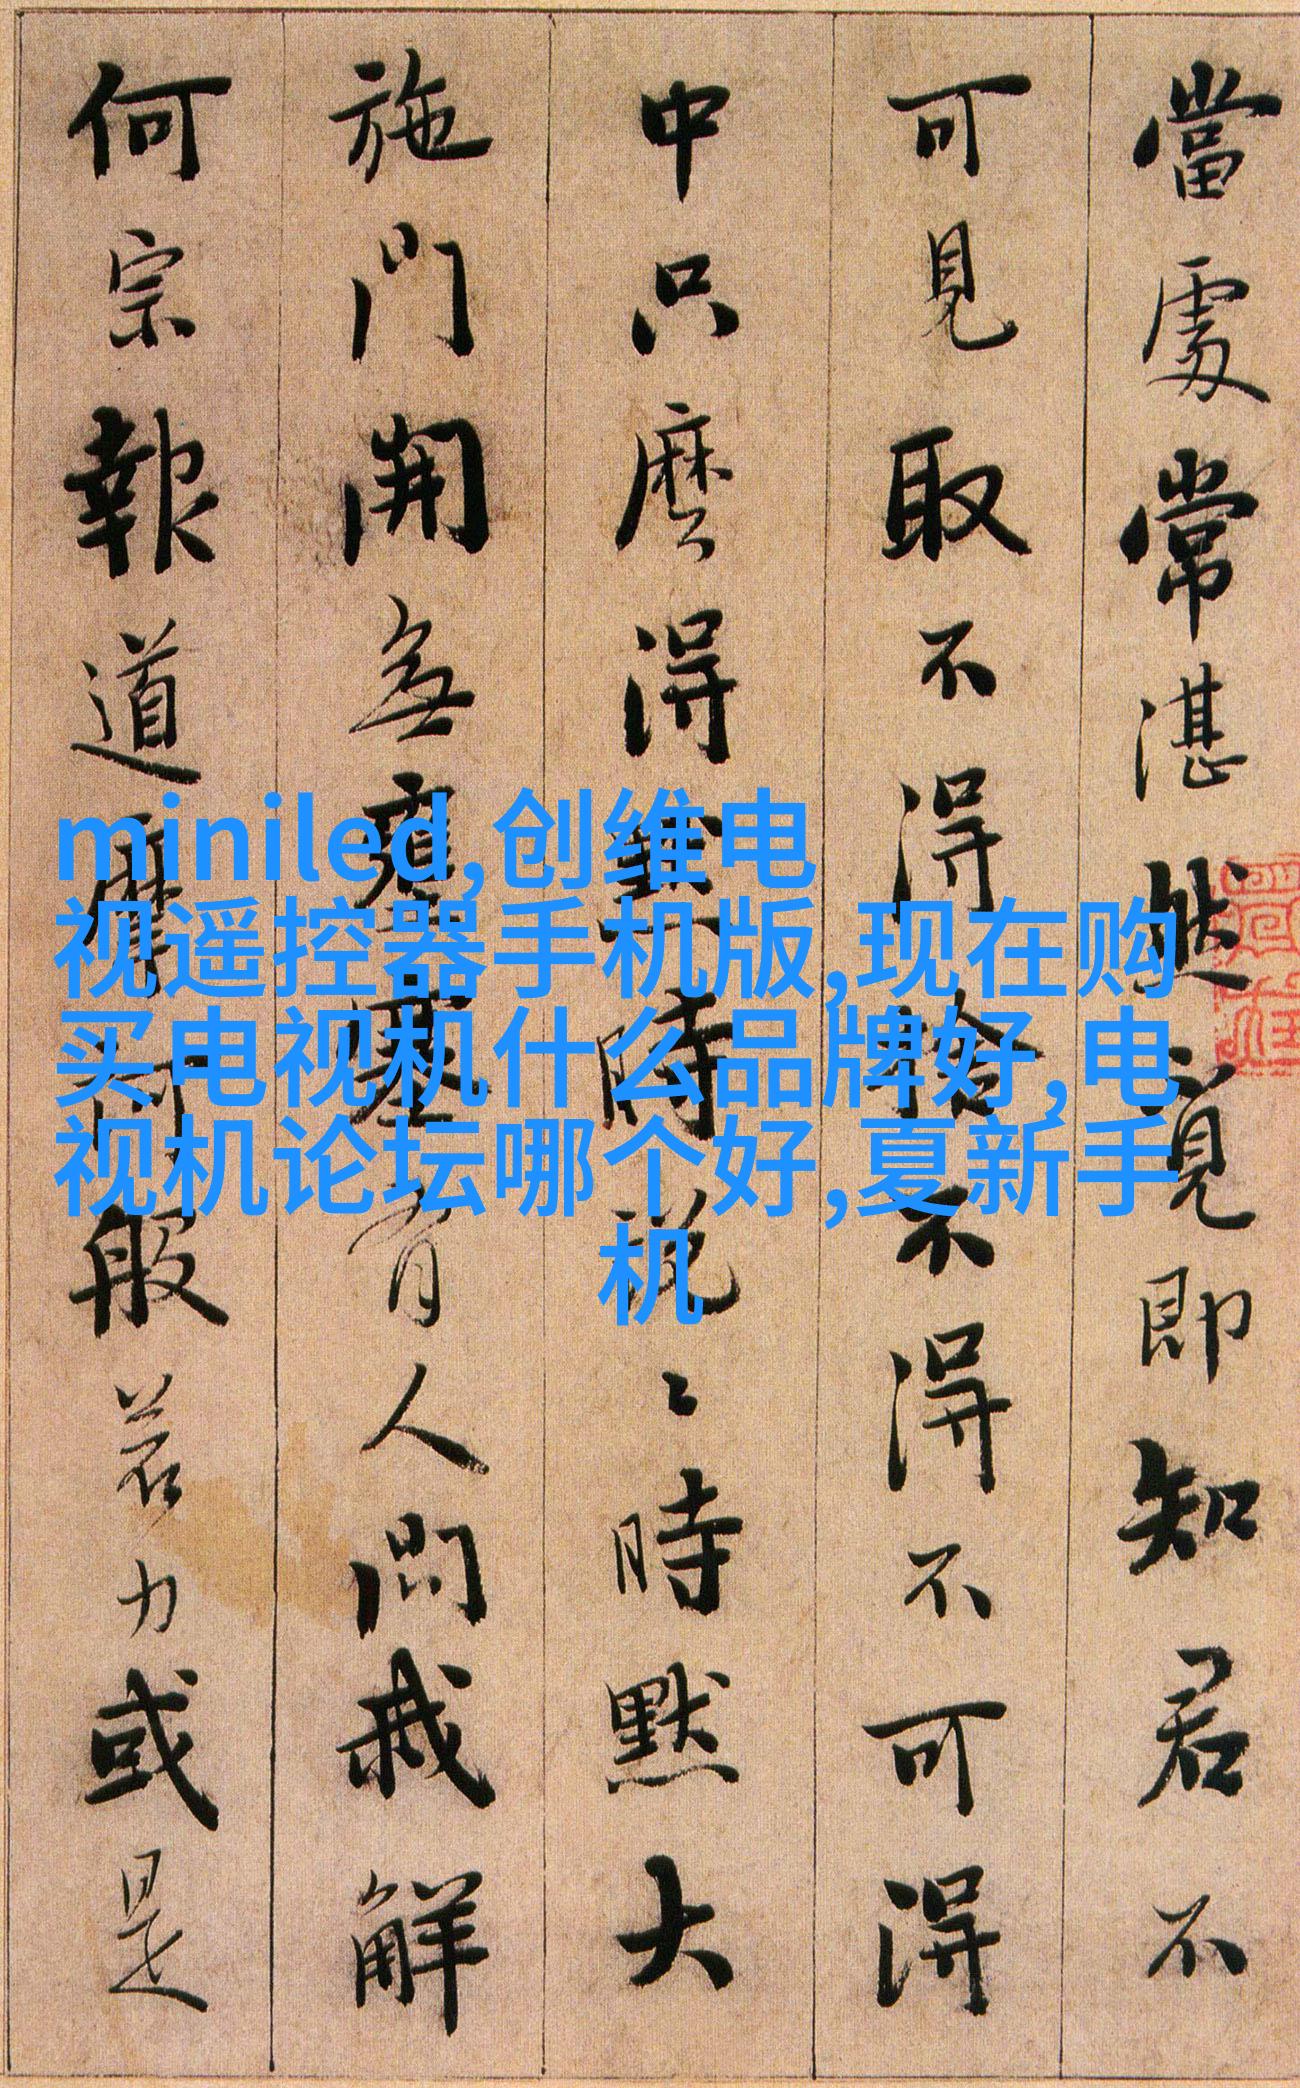 當處常湛然覓即知君不
可見取不得捨不得不可得
中只麼得默時説〻時默大
施門開無壅塞有人問我解
何宗報道摩訶般若力或是
miniled,创维电
视遥控器手机版,现在购
买电视机什么品牌好,电
视机论坛哪个好,夏新手
机